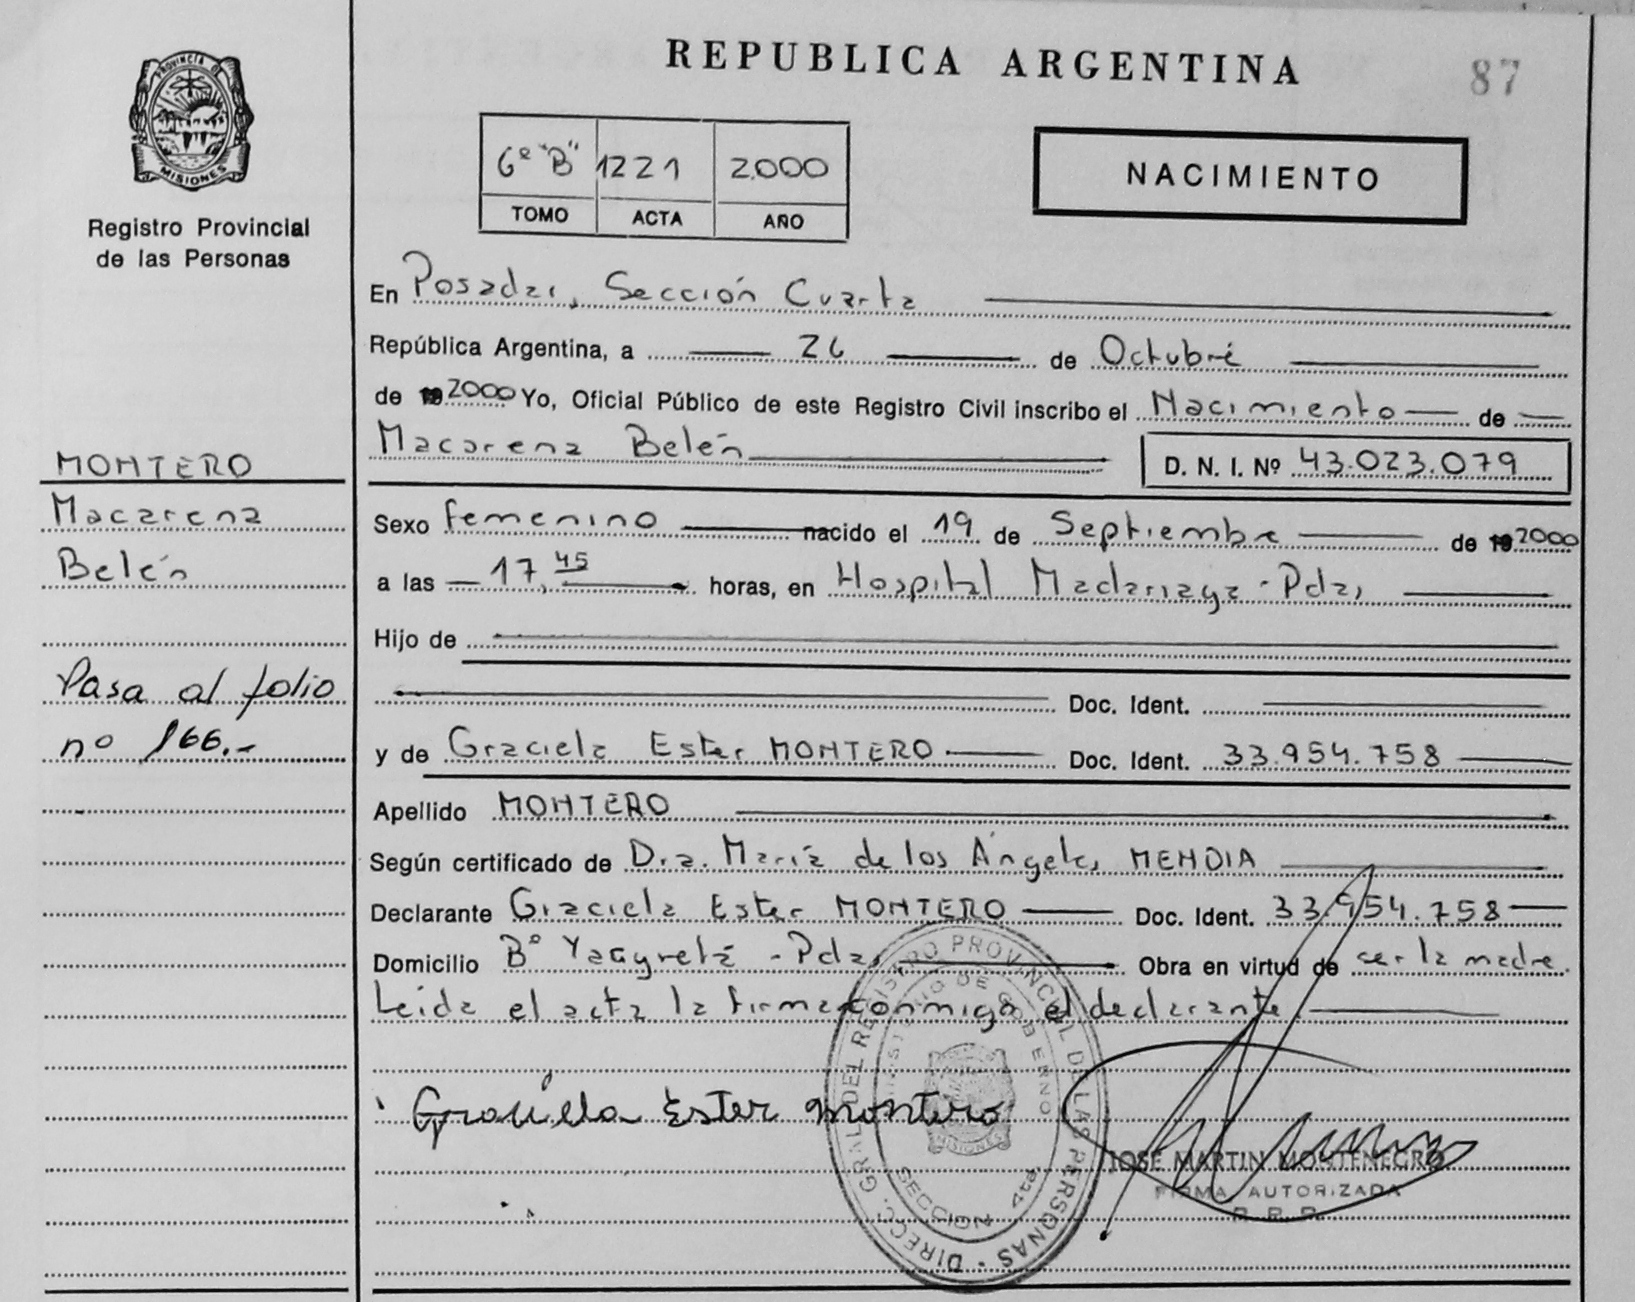 REPUBLICA ARGENTINA
87
PROVINCIA DE
MISIONES
Registro Provincial
de las Personas
6º "B" 1221 2000
TOMO ACTA AÑO
NACIMIENTO
En Posadas, Sección Cuarta
República Argentina, a 26 de Octubre
de 19 2000 Yo, Oficial Público de este Registro Civil inscribo el Nacimiento de
Macarena Belén D. N. I. Nº 43.023.079
MONTERO
Macarena
Belén
Pasa al folio
nº 166.-
Sexo femenino nacido el 19 de Septiembre de 19 2000
a las 17,45 horas, en Hospital Madariaga - Pdas
Hijo de
Doc. Ident.
y de Graciela Ester MONTERO Doc. Ident. 33.954.758
Apellido MONTERO
Según certificado de Dra. María de los Ángeles MENDIA
Declarante Graciela Ester MONTERO Doc. Ident. 33.954.758
Domicilio Bº Yacyretá - Pdas Obra en virtud de ser la madre.
Leída el acta la firma conmigo el declarante
Graciela Ester Montero
DIRECC. GRAL DEL REGISTRO PROVINCIAL DE LAS PERSONAS
MINISTERIO DE GOBIERNO
MISIONES
SECCION 4ta
JOSE MARTIN MONTENEGRO
FIRMA AUTORIZADA
R. P. P.